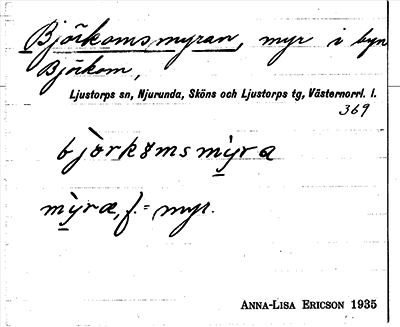 Björkomsmyran, myr i byn
Björkom,
Ljustorps sn, Njurunda, Sköns och Ljustorps tg, Västernorrl. l.
369
bjòrkømsmỳra
mỳræ, f. = myr.
ANNA-LISA ERICSON 1935